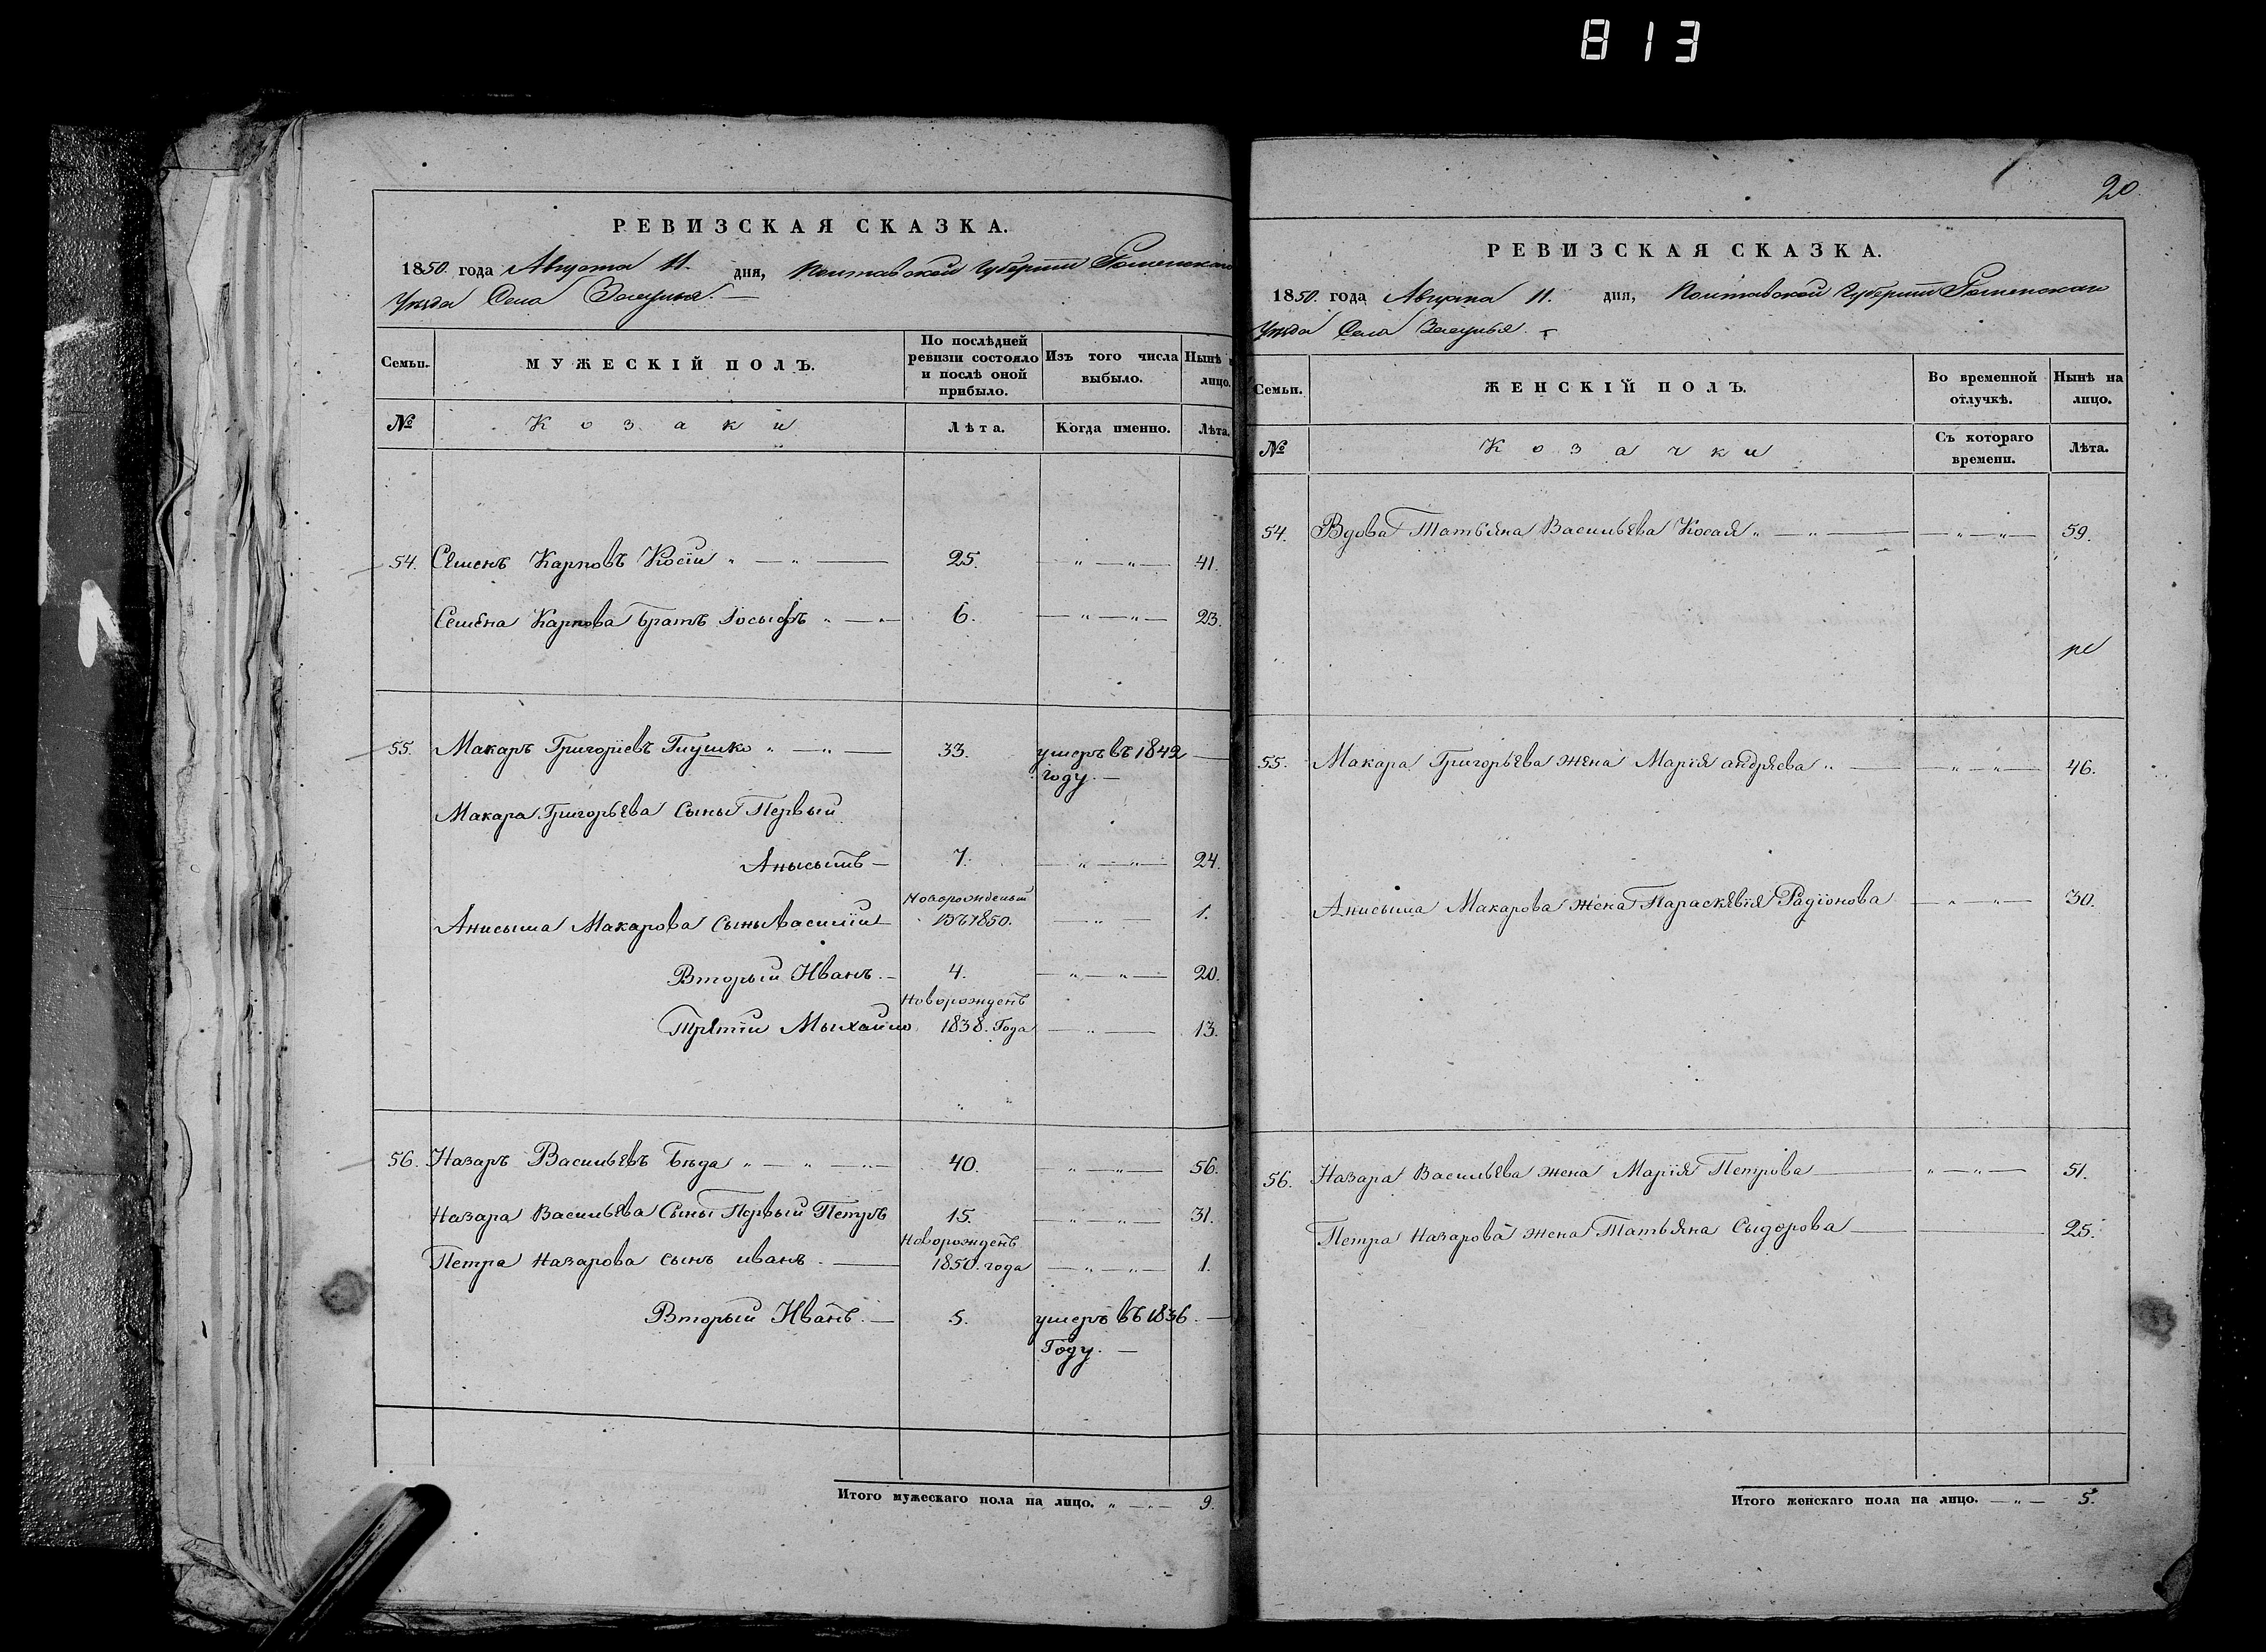 813
РЕВИЗСКАЯ СКАЗКА.
1850. года Августа 11. дня, Полтавской Губернии Роменскаго
Уѣзда Села
Семьи. МУЖЕСКІЙ ПОЛЪ. По послѣдней ревизіи состояло и послѣ оной прибыло. Изъ того числа выбыло. Нынѣ лицо.
№ Козаки Лѣта. Когда именно. Лѣта.
54. Семенъ Карповъ Косій „ — „ — 25. — „ — „ — 41.
Семена Карпова Братъ Іосыфъ „ — „ — 6. — „ — „ — 23.
55. Макаръ Григоріевъ Глушко „ — „ — 33. умеръ въ 1849 —
году. —
Макара Григорьева Сыны Первый
Анысымъ — 7. — „ — „ — 24.
Новорожденый
Анисыма Макарова Сынъ Василій въ 1850. — „ — 1.
Вторый Иванъ. — 4. — „ — „ — 20.
Новорожденъ
Третій Мыхайло 1838. Года — „ — 13.
56. Назаръ Васильевъ Бѣда „ — „ — „ — 40. — „ — „ — 56.
Назара Васильева Сыны Первый Петръ 15. — „ — „ — 31.
Новорожденъ
Петра Назарова сынъ иванъ. — 1850. года — „ — „ — 1.
Вторый Иванъ. — 5. умеръ въ 1836. —
Году. —
Итого мужескаго пола на лицо. „ — „ — 9.
20.
РЕВИЗСКАЯ СКАЗКА.
1850. года Августа 11. дня, Полтавской Губерніи Роменскаго
Уѣзда Села
Семьи. ЖЕНСКІЙ ПОЛЪ. Во временной отлучкѣ. Нынѣ на лицо.
№ Козачки Съ котораго времени. Лѣта.
54. Вдова Татьяна Васильева Косая „ — „ — — „ — „ — 59.
55. Макара Григорьева жена Марія андрѣева „ — — „ — „ — 46.
Анисыма Макарова жена Параскевія Радіонова — „ — „ — 30.
56. Назара Васильева жена Марія Петрова — „ — „ — 51.
Петра Назарова жена Татьяна Сыдорова — 25.
Итого женскаго пола на лицо. — „ — 5.